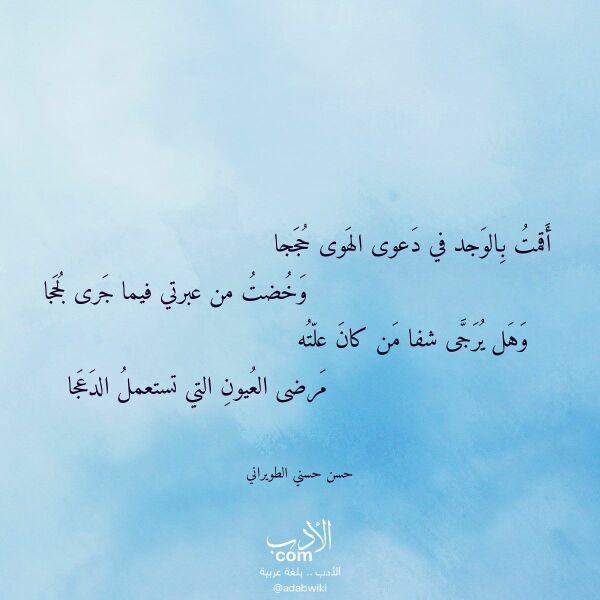 أَقمتُ بِالوَجد في دَعوى الهَوى حُجَجا
وَخُضتُ من عبرتي فيما جَرى لُججَا
وَهَل يُرَجَّى شفا مَن كانَ علّتُه
مَرضى العُيونِ التي تستعملُ الدَعَجَا
حسن حسني الطويراني
الأدب
com
الأدب .. بلغة عربية
@adabwiki